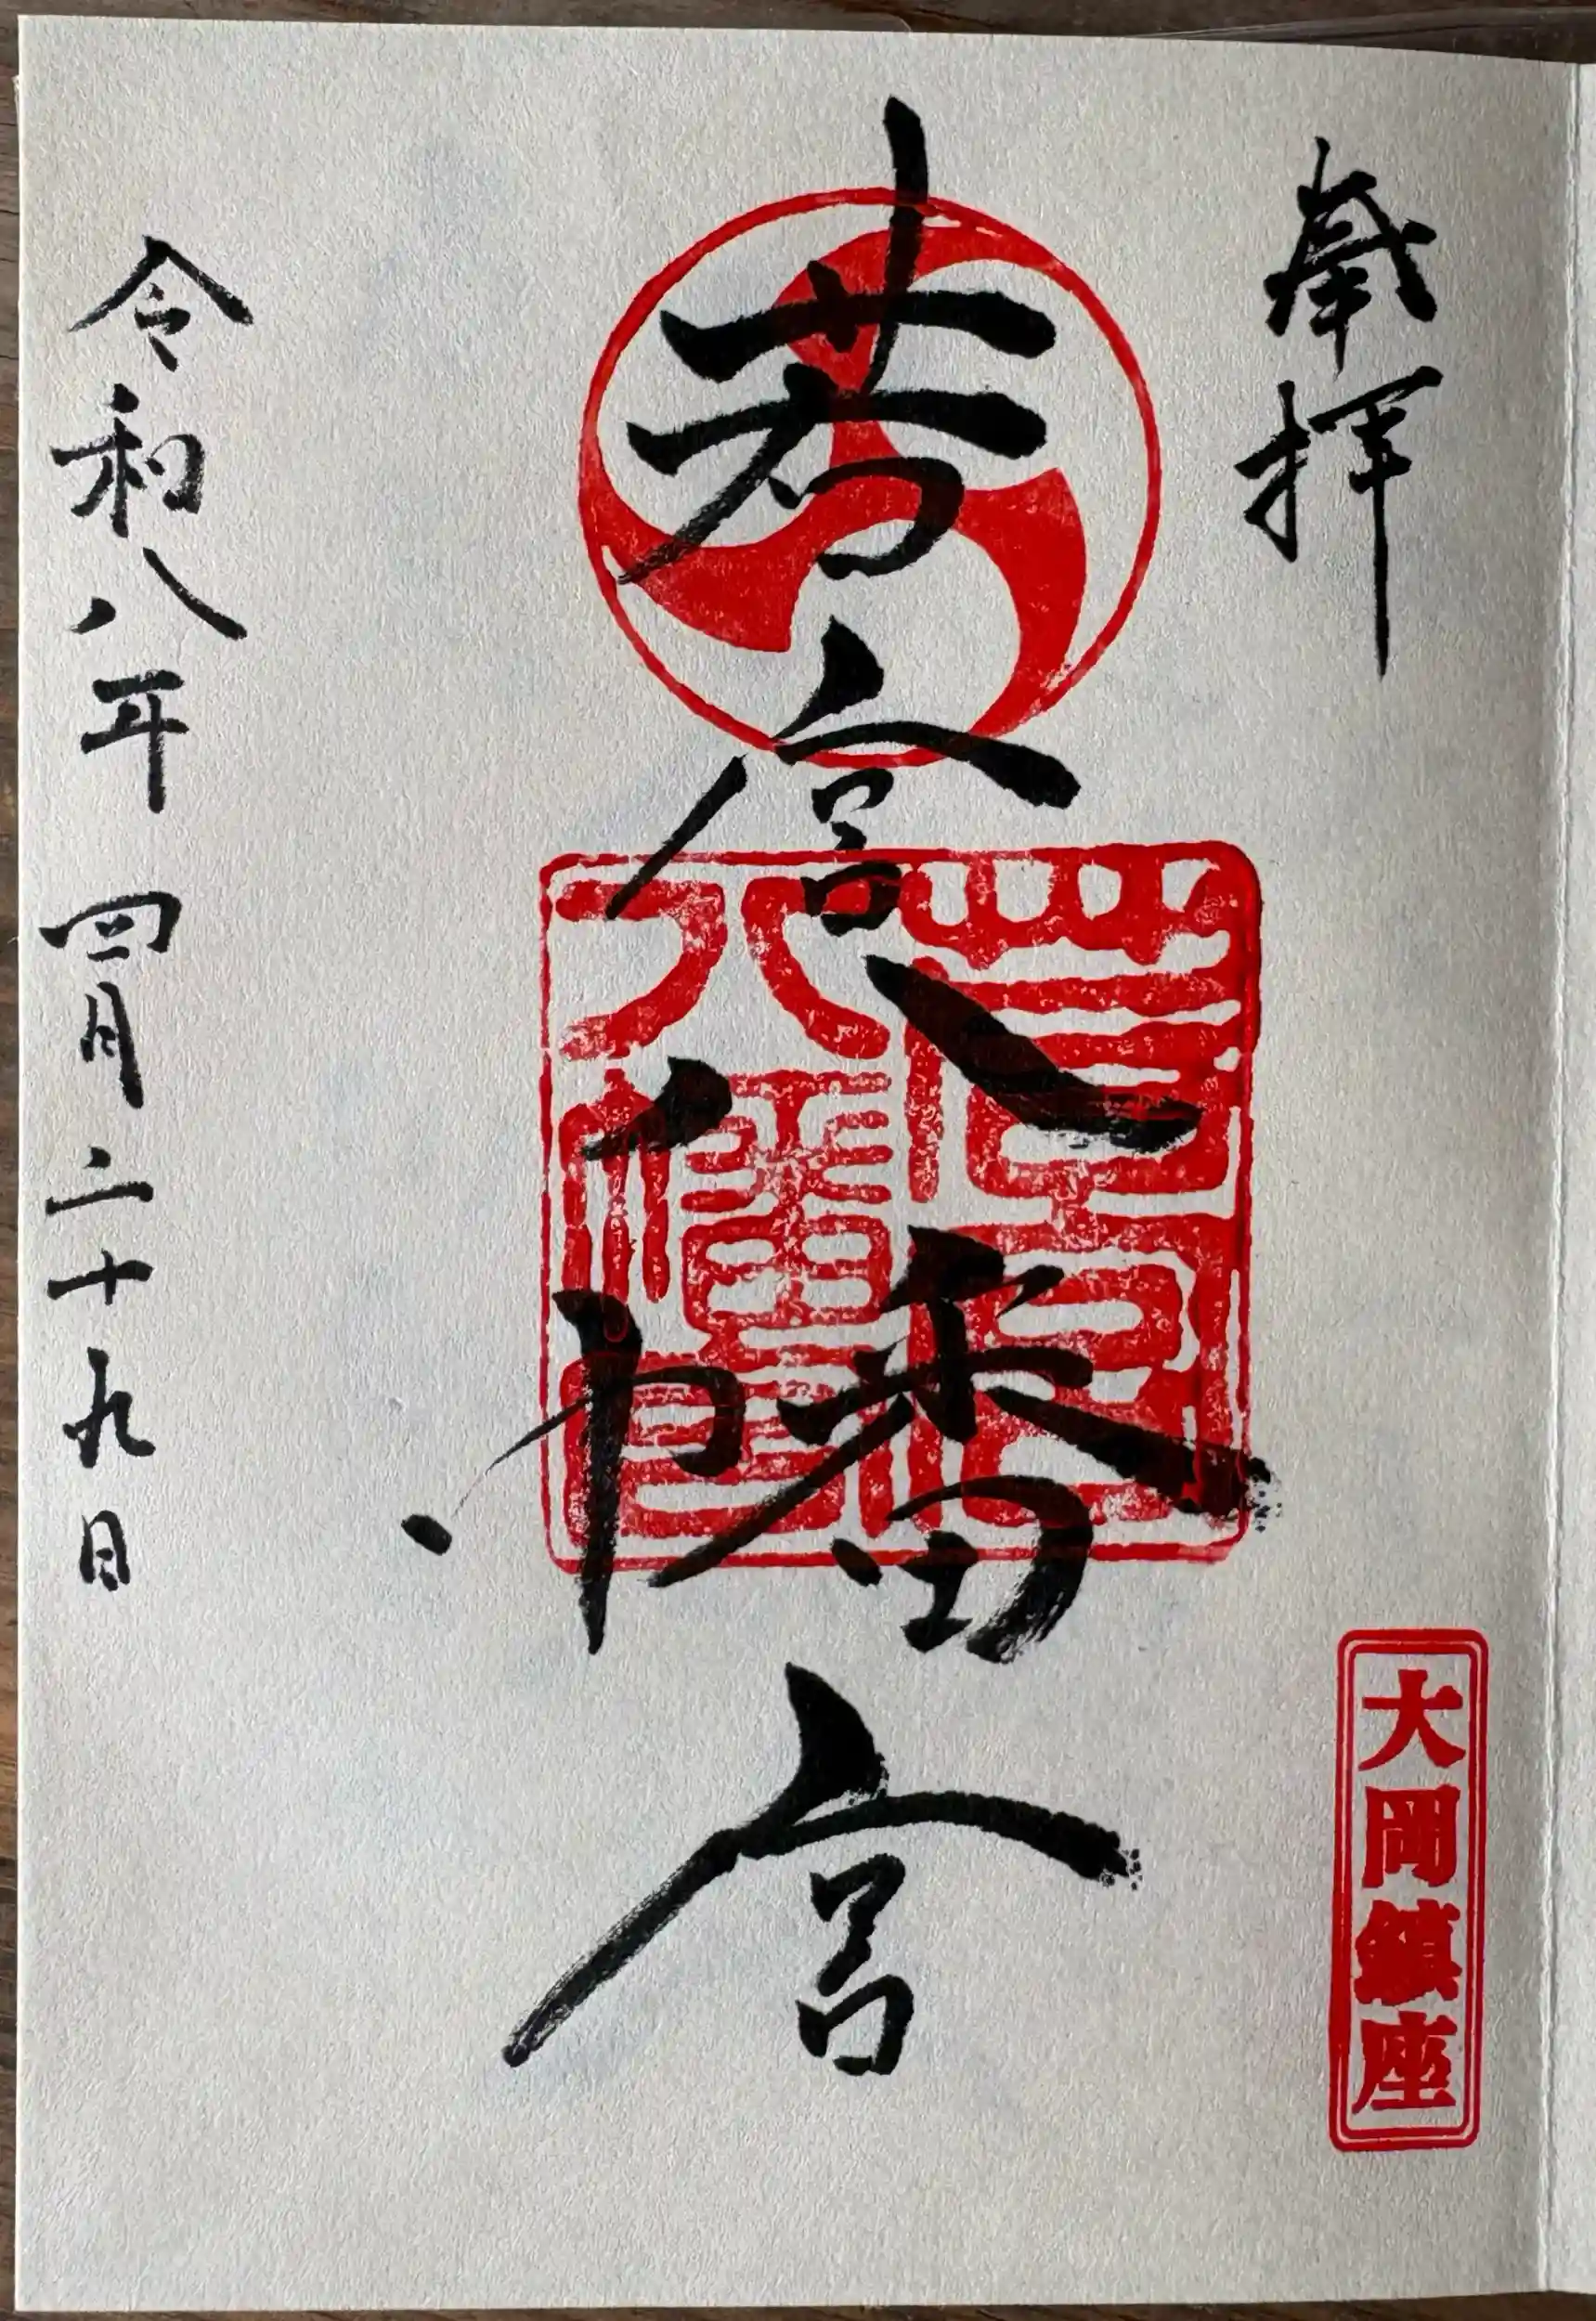 奉拝
大岡鎮座
若宮八幡宮
若宮八幡宮
令和八年四月二十九日